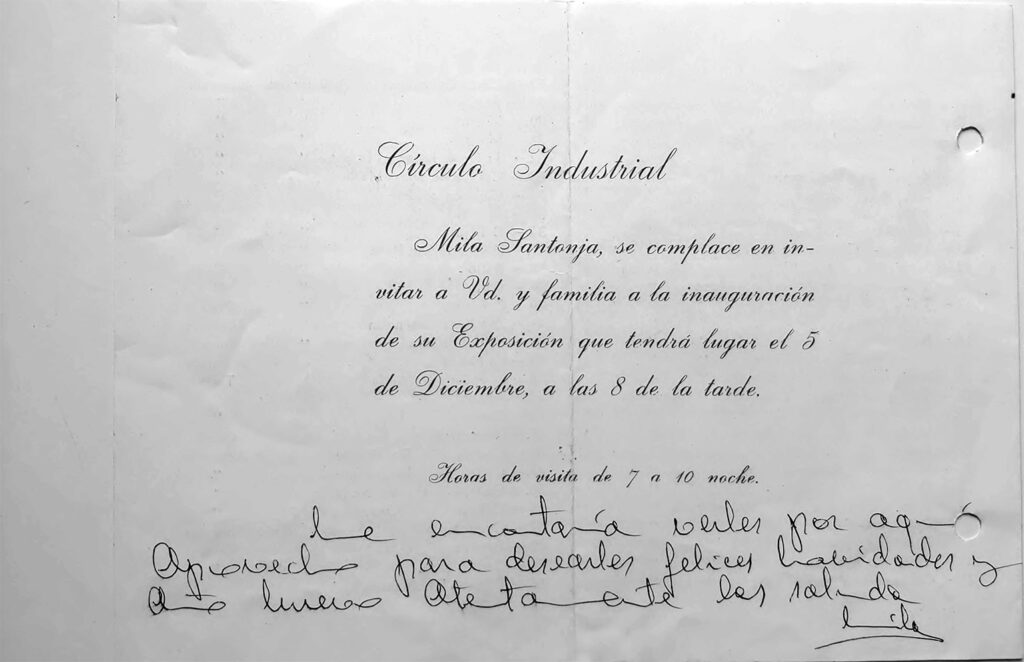 Círculo Industrial
Mila Santonja, se complace en in-
vitar a Vd. y familia a la inauguración
de su Exposición que tendrá lugar el 5
de Diciembre, a las 8 de la tarde.
Horas de visita de 7 a 10 noche.
Me encantaría verles por aquí
Aprovecho para desearles felices Navidades y
Año Nuevo Atentamente les saluda
Mila